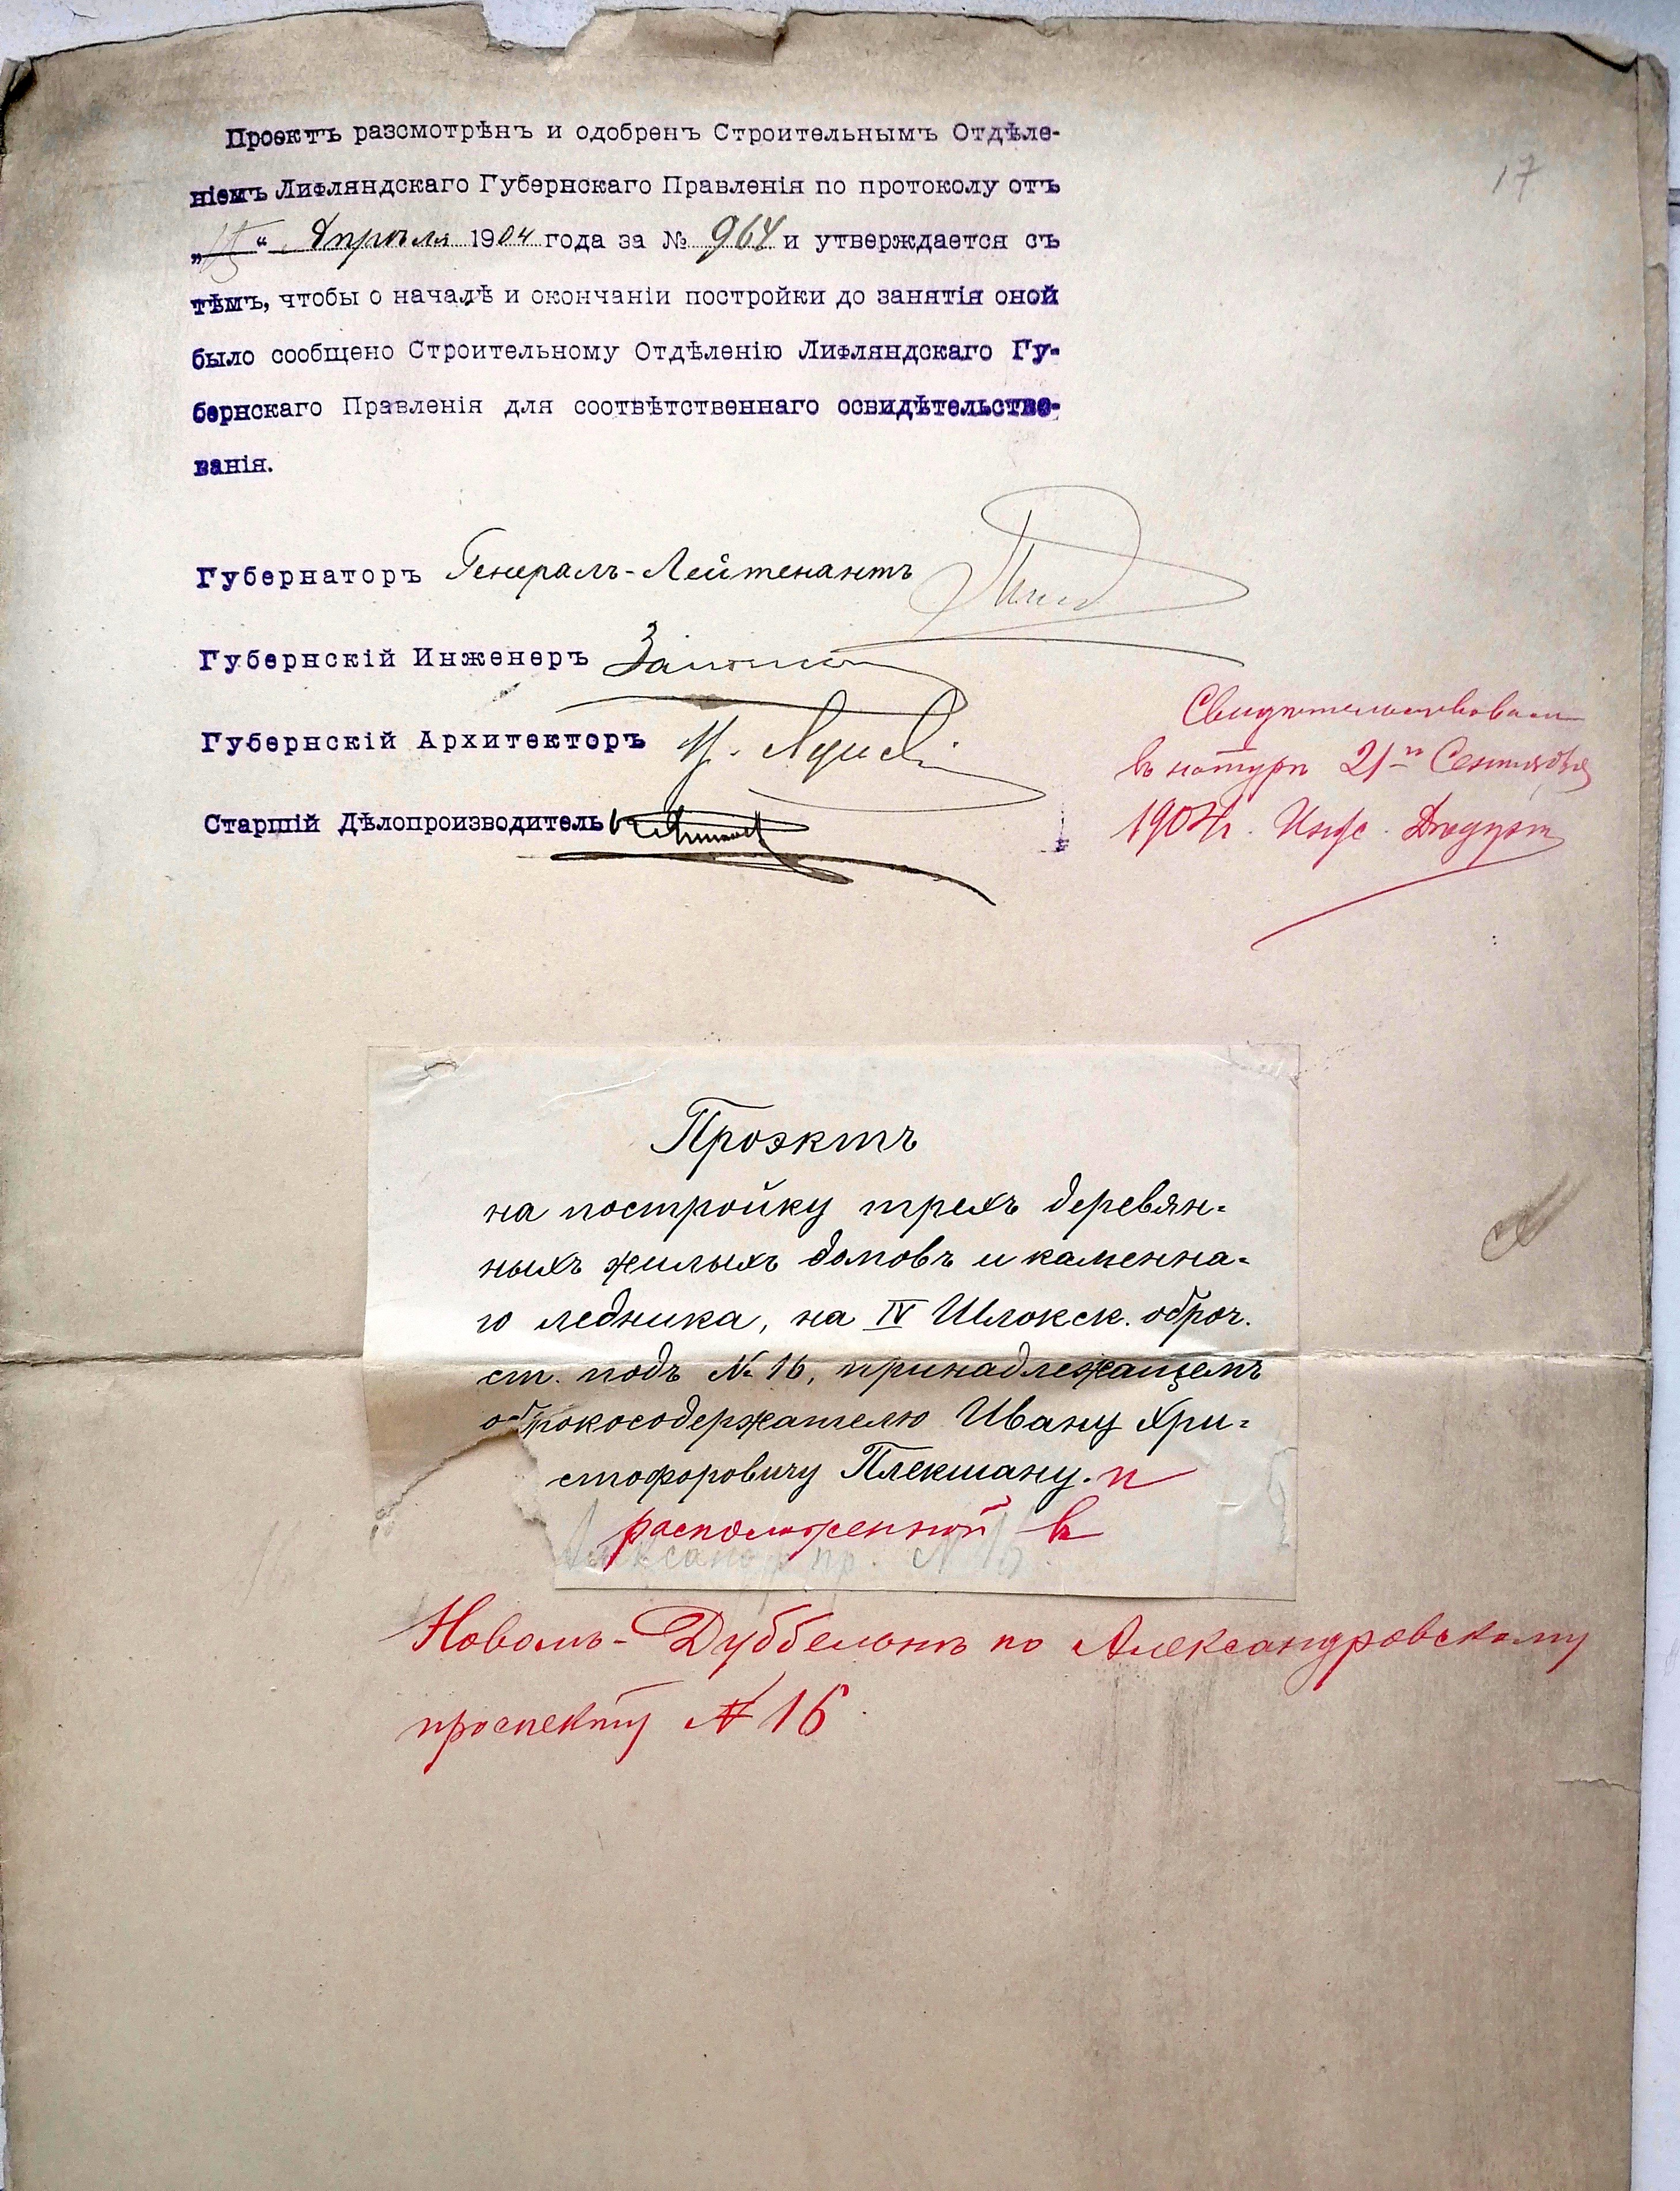 17
Проектъ разсмотрѣнъ и одобренъ Строительнымъ Отдѣле-
ніемъ Лифляндскаго Губернскаго Правленія по протоколу отъ
„ “ Апрѣля 1904 года за № 964 и утверждается съ
тѣмъ, чтобы о началѣ и окончаніи постройки до занятія оной
было сообщено Строительному Отдѣленію Лифляндскаго Гу-
бернскаго Правленія для соотвѣтственнаго освидѣтельство-
ванія.
Губернаторъ Генералъ-Лейтенантъ
Губернскій Инженеръ
Губернскій Архитекторъ
Старшій Дѣлопроизводитель
Свидѣтельствовалъ
въ натурѣ 21го Сентября
1904 г. Инж.
Проэктъ
на постройку трехъ деревян-
ныхъ жилыхъ домовъ и каменна-
го ледника, на IV Шлокск. оброч.
ст. подъ № 16, принадлежащемъ
оброкосодержателю Ивану Хри-
стофоровичу Плекшану. и
расположенной въ
Александр. пр. № 16.
Новомъ-Дуббельнѣ по Александровскому
проспекту № 16